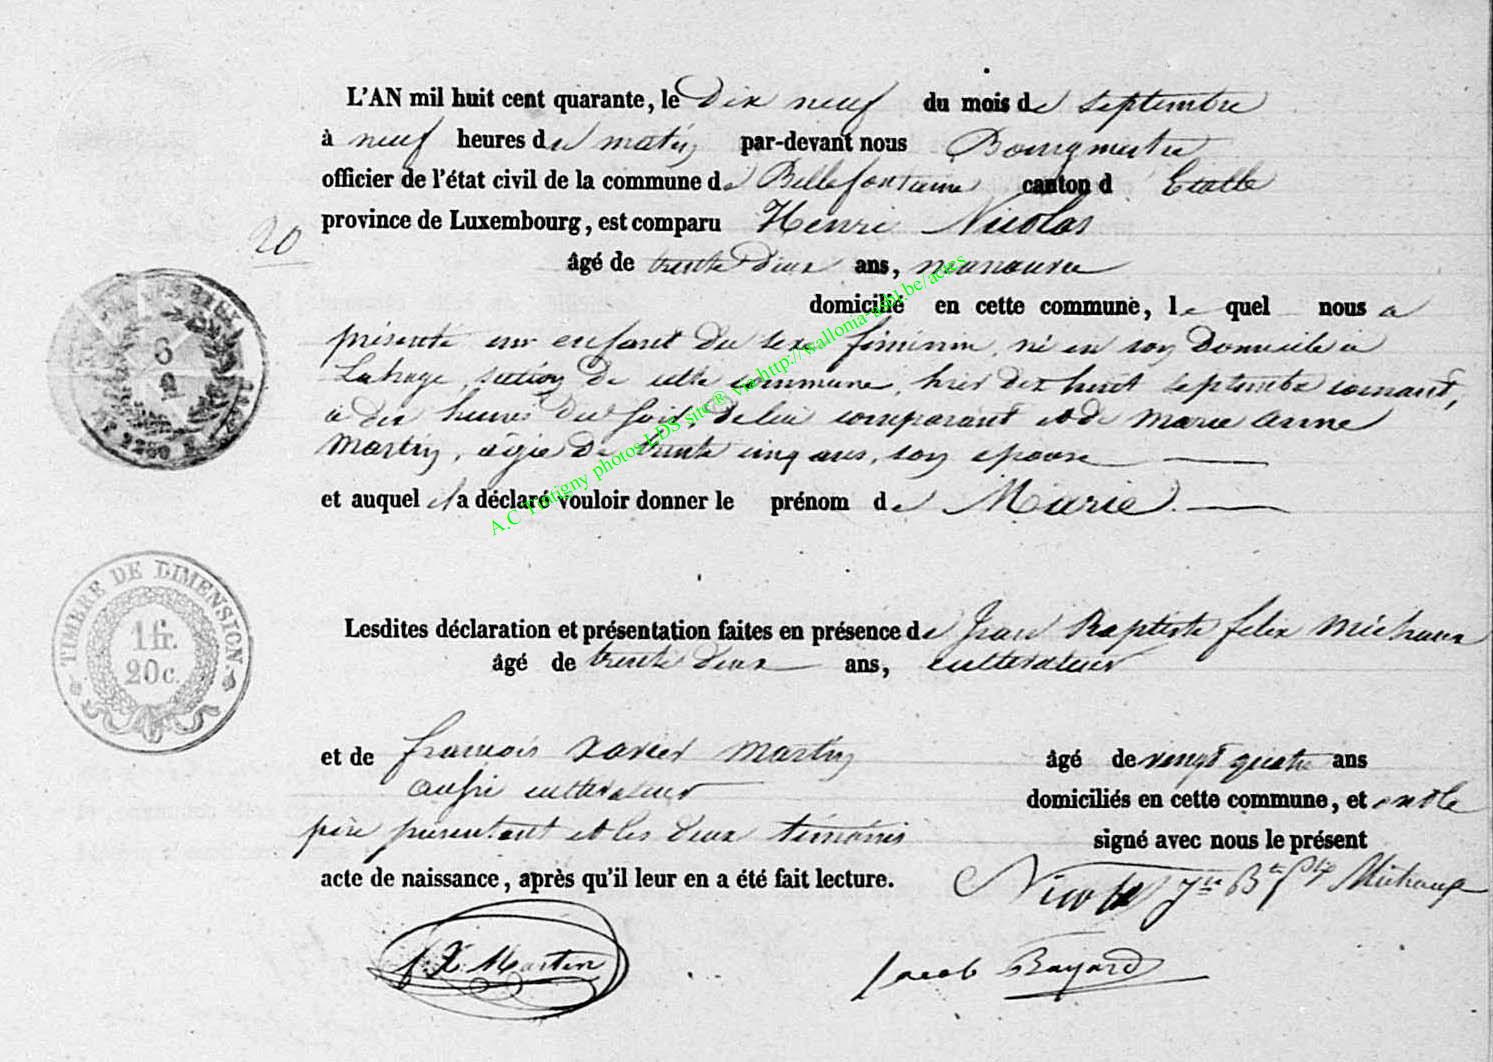 L'AN mil huit cent quarante, le dix neuf du mois de septembre
à neuf heures du matin par-devant nous Bourgmestre
officier de l'état civil de la commune de Bellefontaine canton d Etalle
province de Luxembourg, est comparu Henri Nicolas
20
âgé de trente deux ans, manœuvre
domicilié en cette commune, le quel nous a
présenté un enfant du sexe féminin, né en son domicile à
Lahage, section de cette commune, hier dix huit septembre courant,
à dix heures du soir, de lui comparant et de Marie Anne
Martin, agée de trente cinq ans, son épouse
et auquel il a déclaré vouloir donner le prénom de Marie.
Lesdites déclaration et présentation faites en présence de Jean Baptiste felix Michaux
âgé de trente deux ans, cultivateur
et de françois Xavier Martin âgé de vingt quatre ans
aussi cultivateur domiciliés en cette commune, et ont le
père présentant et les deux témoins signé avec nous le présent
acte de naissance, après qu'il leur en a été fait lecture. Nicolas Jn Bte Michaux
f. X. Martin Jacob Bayard
6
2
TIMBRE DE DIMENSION
1 fr.
20 c.
A.C Tintigny photos LDS site® via http://wallonia-asbl.be/actes